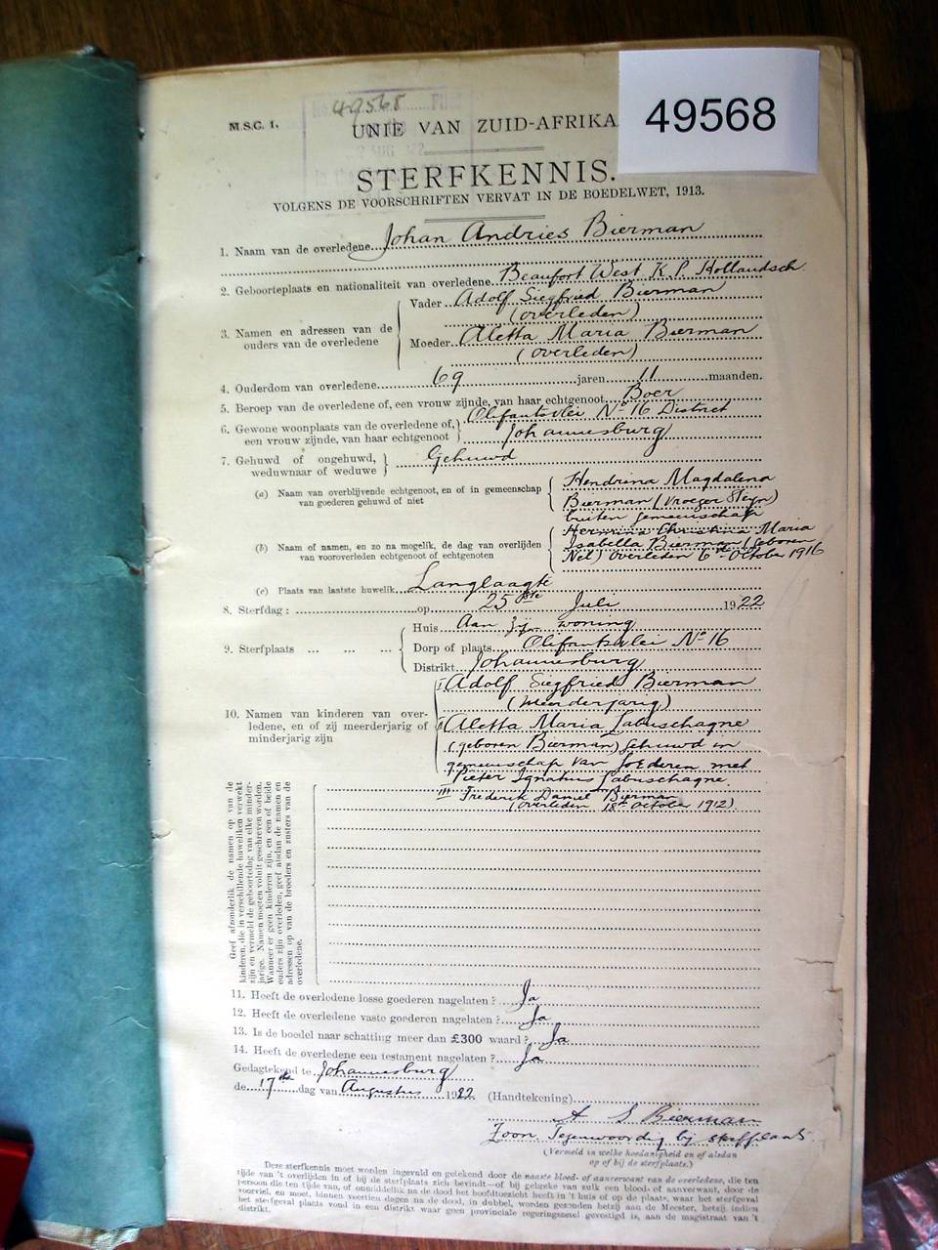 49568
49568
M.S.C. 1.
UNIE VAN ZUID-AFRIKA
STERFKENNIS.
VOLGENS DE VOORSCHRIFTEN VERVAT IN DE BOEDELWET, 1913.
1. Naam van de overledene Johan Andries Bierman
2. Geboorteplaats en nationaliteit van overledene Beaufort West K. P. Hollandsch
3. Namen en adressen van de ouders van de overledene
Vader Adolf Siegfried Bierman
(overleden)
Moeder Aletta Maria Bierman
(overleden)
4. Ouderdom van overledene 69 jaren 11 maanden.
5. Beroep van de overledene of, een vrouw zijnde, van haar echtgenoot Boer
6. Gewone woonplaats van de overledene of, een vrouw zijnde, van haar echtgenoot
Olifantsvlei No 16 District
Johannesburg
7. Gehuwd of ongehuwd, weduwnaar of weduwe Gehuwd
(a) Naam van overblijvende echtgenoot, en of in gemeenschap van goederen gehuwd of niet
Hendrina Magdalena
Bierman (Vroeger Steyn)
buiten gemeenschap
(b) Naam of namen, en zo na mogelik, de dag van overlijden van vooroverleden echtgenoot of echtgenoten
Hermina Christina Maria
Isabella Bierman (geboren
Nel) Overleden 6de October 1916
(c) Plaats van laatste huwelik Langlaagte
8. Sterfdag: op 25ste Juli 1922
9. Sterfplaats ... ... ...
Huis Aan zijn woning
Dorp of plaats Olifantsvlei No 16
Distrikt Johannesburg
10. Namen van kinderen van overledene, en of zij meerderjarig of minderjarig zijn
I Adolf Siegfried Bierman
(Meerderjarig)
II Aletta Maria Labuschagne
(geboren Bierman) Gehuwd in
gemeenschap van Goederen met
Pieter Ignatius Labuschagne
III Frederik Daniel Bierman
(overleden 18de October 1912)
Geef afzonderlik de namen op van de
kinderen, die in verschillende huweliken verwekt
zijn en vermeld de geboortedag van elke minderjarige.
Namen moeten voluit geschreven worden.
Wanneer er geen kinderen zijn, en een of beide
ouders zijn overleden, geef alsdan de namen en
adressen op van de broeders en zusters van de
overledene.
11. Heeft de overledene losse goederen nagelaten? Ja
12. Heeft de overledene vaste goederen nagelaten? Ja
13. Is de boedel naar schatting meer dan £300 waard? Ja
14. Heeft de overledene een testament nagelaten? Ja
Gedagtekend te Johannesburg
de 17de dag van Augustus 1922
(Handtekening)
A S Bierman
Zoon Tegenwoordig bij sterfplaats
(Vermeld in welke hoedanigheid en of alsdan
op of bij de sterfplaats.)
Deze sterfkennis moet worden ingevuld en getekend door de naaste bloed- of aanverwant van de overledene, die ten
tijde van 't overlijden in of bij de sterfplaats zich bevindt—of bij gebreke van zulk een bloed- of aanverwant, door de
persoon die ten tijde van, of onmiddellik na de dood het hoofdtoezicht heeft in 't huis of op de plaats, waar het sterfgeval
voorviel, en moet, binnen veertien dagen na de dood, in dubbel, worden gezonden hetzij aan de Meester, hetzij indien
het sterfgeval plaats vond in een distrikt waar geen provinciale regeringszetel gevestigd is, aan de magistraat van 't
distrikt.